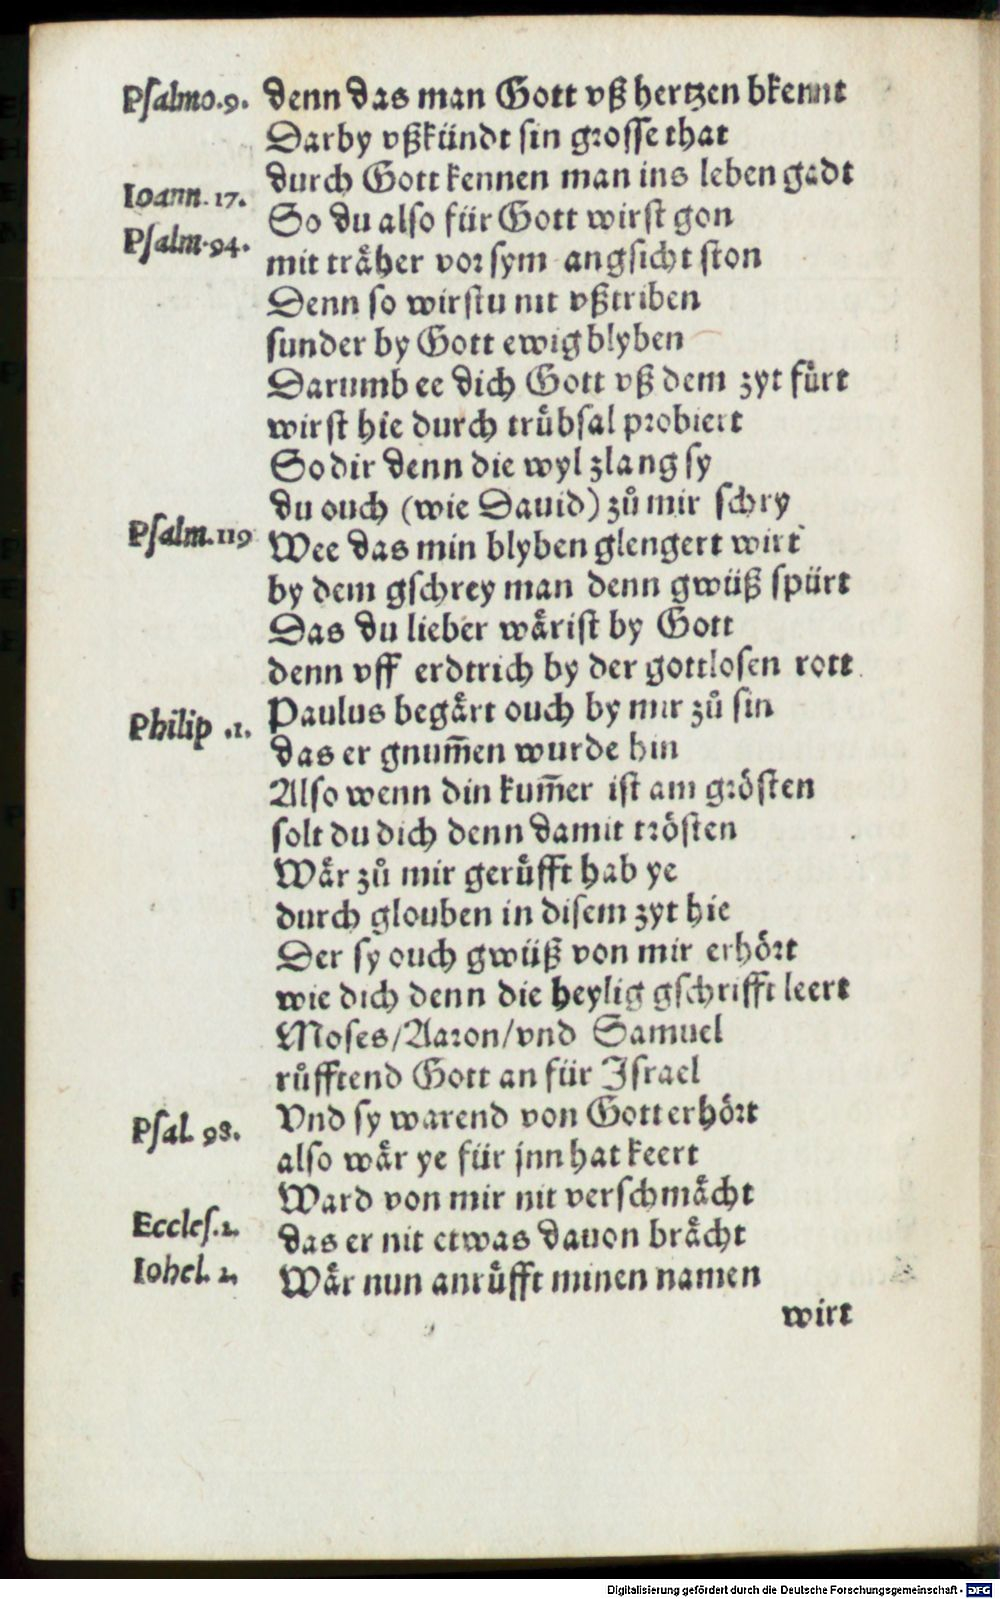 Psalmo.9. denn das man Gott vß hertzen bkennt
Darby vßkündt sin grosse that
durch Gott kennen man ins leben gadt
Ioann. 17.
So du also für Gott wirst gon
Psalm.94.
mit träher vor sym angsicht ston
Denn so wirstu nit vßtriben
sunder by Gott ewig blyben
Darumb ee dich Gott vß dem zyt fürt
wirst hie durch trübsal probiert
So dir denn die wyl zlang sy
du ouch (wie Dauid) zů mir schry
Psalm.119 Wee das min blyben glengert wirt
by dem gschrey man denn gwüß spürt
Das du lieber wärist by Gott
denn vff erdtrich by der gottlosen rott.
Philip .1. Paulus begärt ouch by mir zů sin
das er gnum̄en wurde hin
Also wenn din kum̄er ist am grösten
solt du dich denn damit trösten
Wär zů mir gerůfft hab ye
durch glouben in disem zyt hie
Der sy ouch gwüß von mir erhört
wie dich denn die heylig gschrifft leert
Moses/Aaron/vnd Samuel
růfftend Gott an für Israel
Psal. 98. Vnd sy warend von Gott erhört
also wär ye für jnn hat keert
Ward von mir nit verschmächt
Eccles.2.
das er nit etwas dauon brächt
Iohel. 2. Wär nun anrůfft minen namen
wirt
Digitalisierung gefördert durch die Deutsche Forschungsgemeinschaft - DFG